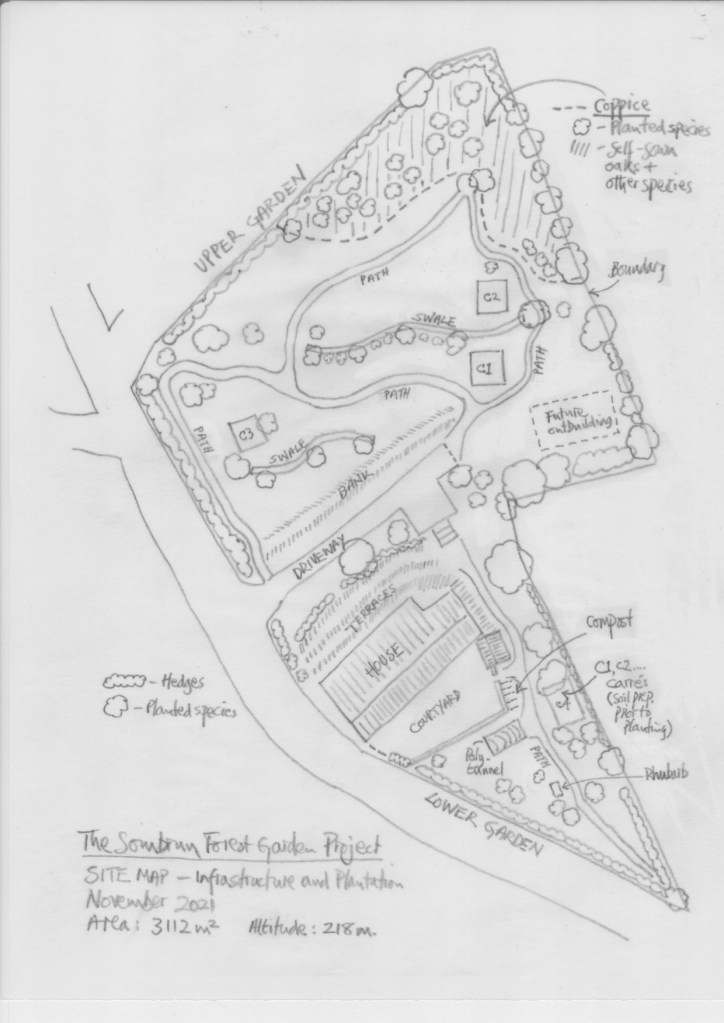 Coppice
- Planted species
- Self-sown
oaks +
other species
UPPER GARDEN
Boundary
PATH
C2
SWALE
C1
PATH
PATH
Future
outbuilding
PATH
C3
SWALE
BANK
DRIVEWAY
TERRACES
HOUSE
COURTYARD
Compost
C1, C2....
carrés
(soil prep.
prior to
planting)
C4
- Hedges
- Planted species
Poly-
tunnel
PATH
Rhubarb
LOWER GARDEN
The Sombrun Forest Garden Project
SITE MAP - Infrastructure and Plantation
November 2021
Area: 3112 m² Altitude: 218 m.